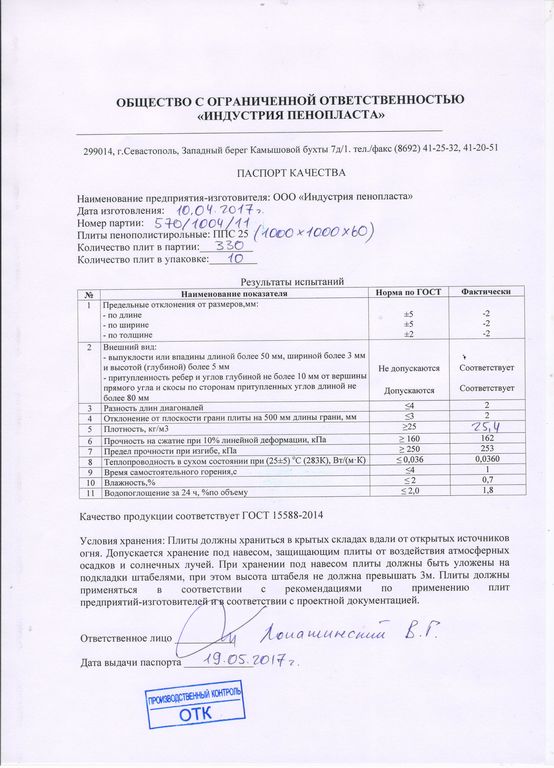 ОБЩЕСТВО С ОГРАНИЧЕННОЙ ОТВЕТСТВЕННОСТЬЮ
«ИНДУСТРИЯ ПЕНОПЛАСТА»
299014, г.Севастополь, Западный берег Камышовой бухты 7д/1. тел./факс (8692) 41-25-32, 41-20-51
ПАСПОРТ КАЧЕСТВА
Наименование предприятия-изготовителя: ООО «Индустрия пенопласта»
Дата изготовления: 10.04.2017г.
Номер партии: 570/1004/11
Плиты пенополистирольные: ППС 25 (1000×1000×60)
Количество плит в партии: 330
Количество плит в упаковке: 10
Результаты испытаний
№ Наименование показателя Норма по ГОСТ Фактически
1 Предельные отклонения от размеров,мм:
- по длине ±5 -2
- по ширине ±5 -2
- по толщине ±2 -2
2 Внешний вид:
- выпуклости или впадины длиной более 50 мм, шириной более 3 мм
и высотой (глубиной) более 5 мм Не допускаются Соответствует
- притупленность ребер и углов глубиной не более 10 мм от вершины
прямого угла и скосы по сторонам притупленных углов длиной не Допускаются Соответствует
более 80 мм
3 Разность длин диагоналей ≤4 2
4 Отклонение от плоскости грани плиты на 500 мм длины грани, мм ≤3 2
5 Плотность, кг/м3 ≥25 25,4
6 Прочность на сжатие при 10% линейной деформации, кПа ≥ 160 162
7 Предел прочности при изгибе, кПа ≥ 250 253
8 Теплопроводность в сухом состоянии при (25±5) ⁰С (283К), Вт/(м·К) ≤ 0,036 0,0360
9 Время самостоятельного горения,с ≤4 1
10 Влажность,% ≤ 2 0,7
11 Водопоглощение за 24 ч, %по объему ≤ 2,0 1,8
Качество продукции соответствует ГОСТ 15588-2014
Условия хранения: Плиты должны храниться в крытых складах вдали от открытых источников
огня. Допускается хранение под навесом, защищающим плиты от воздействия атмосферных
осадков и солнечных лучей. При хранении под навесом плиты должны быть уложены на
подкладки штабелями, при этом высота штабеля не должна превышать 3м. Плиты должны
применяться в соответствии с рекомендациями по применению плит
предприятий-изготовителей и в соответствии с проектной документацией.
Ответственное лицо Лопашинский В.Г.
Дата выдачи паспорта 19.05.2017г.
ПРОИЗВОДСТВЕННЫЙ КОНТРОЛЬ
ОТК